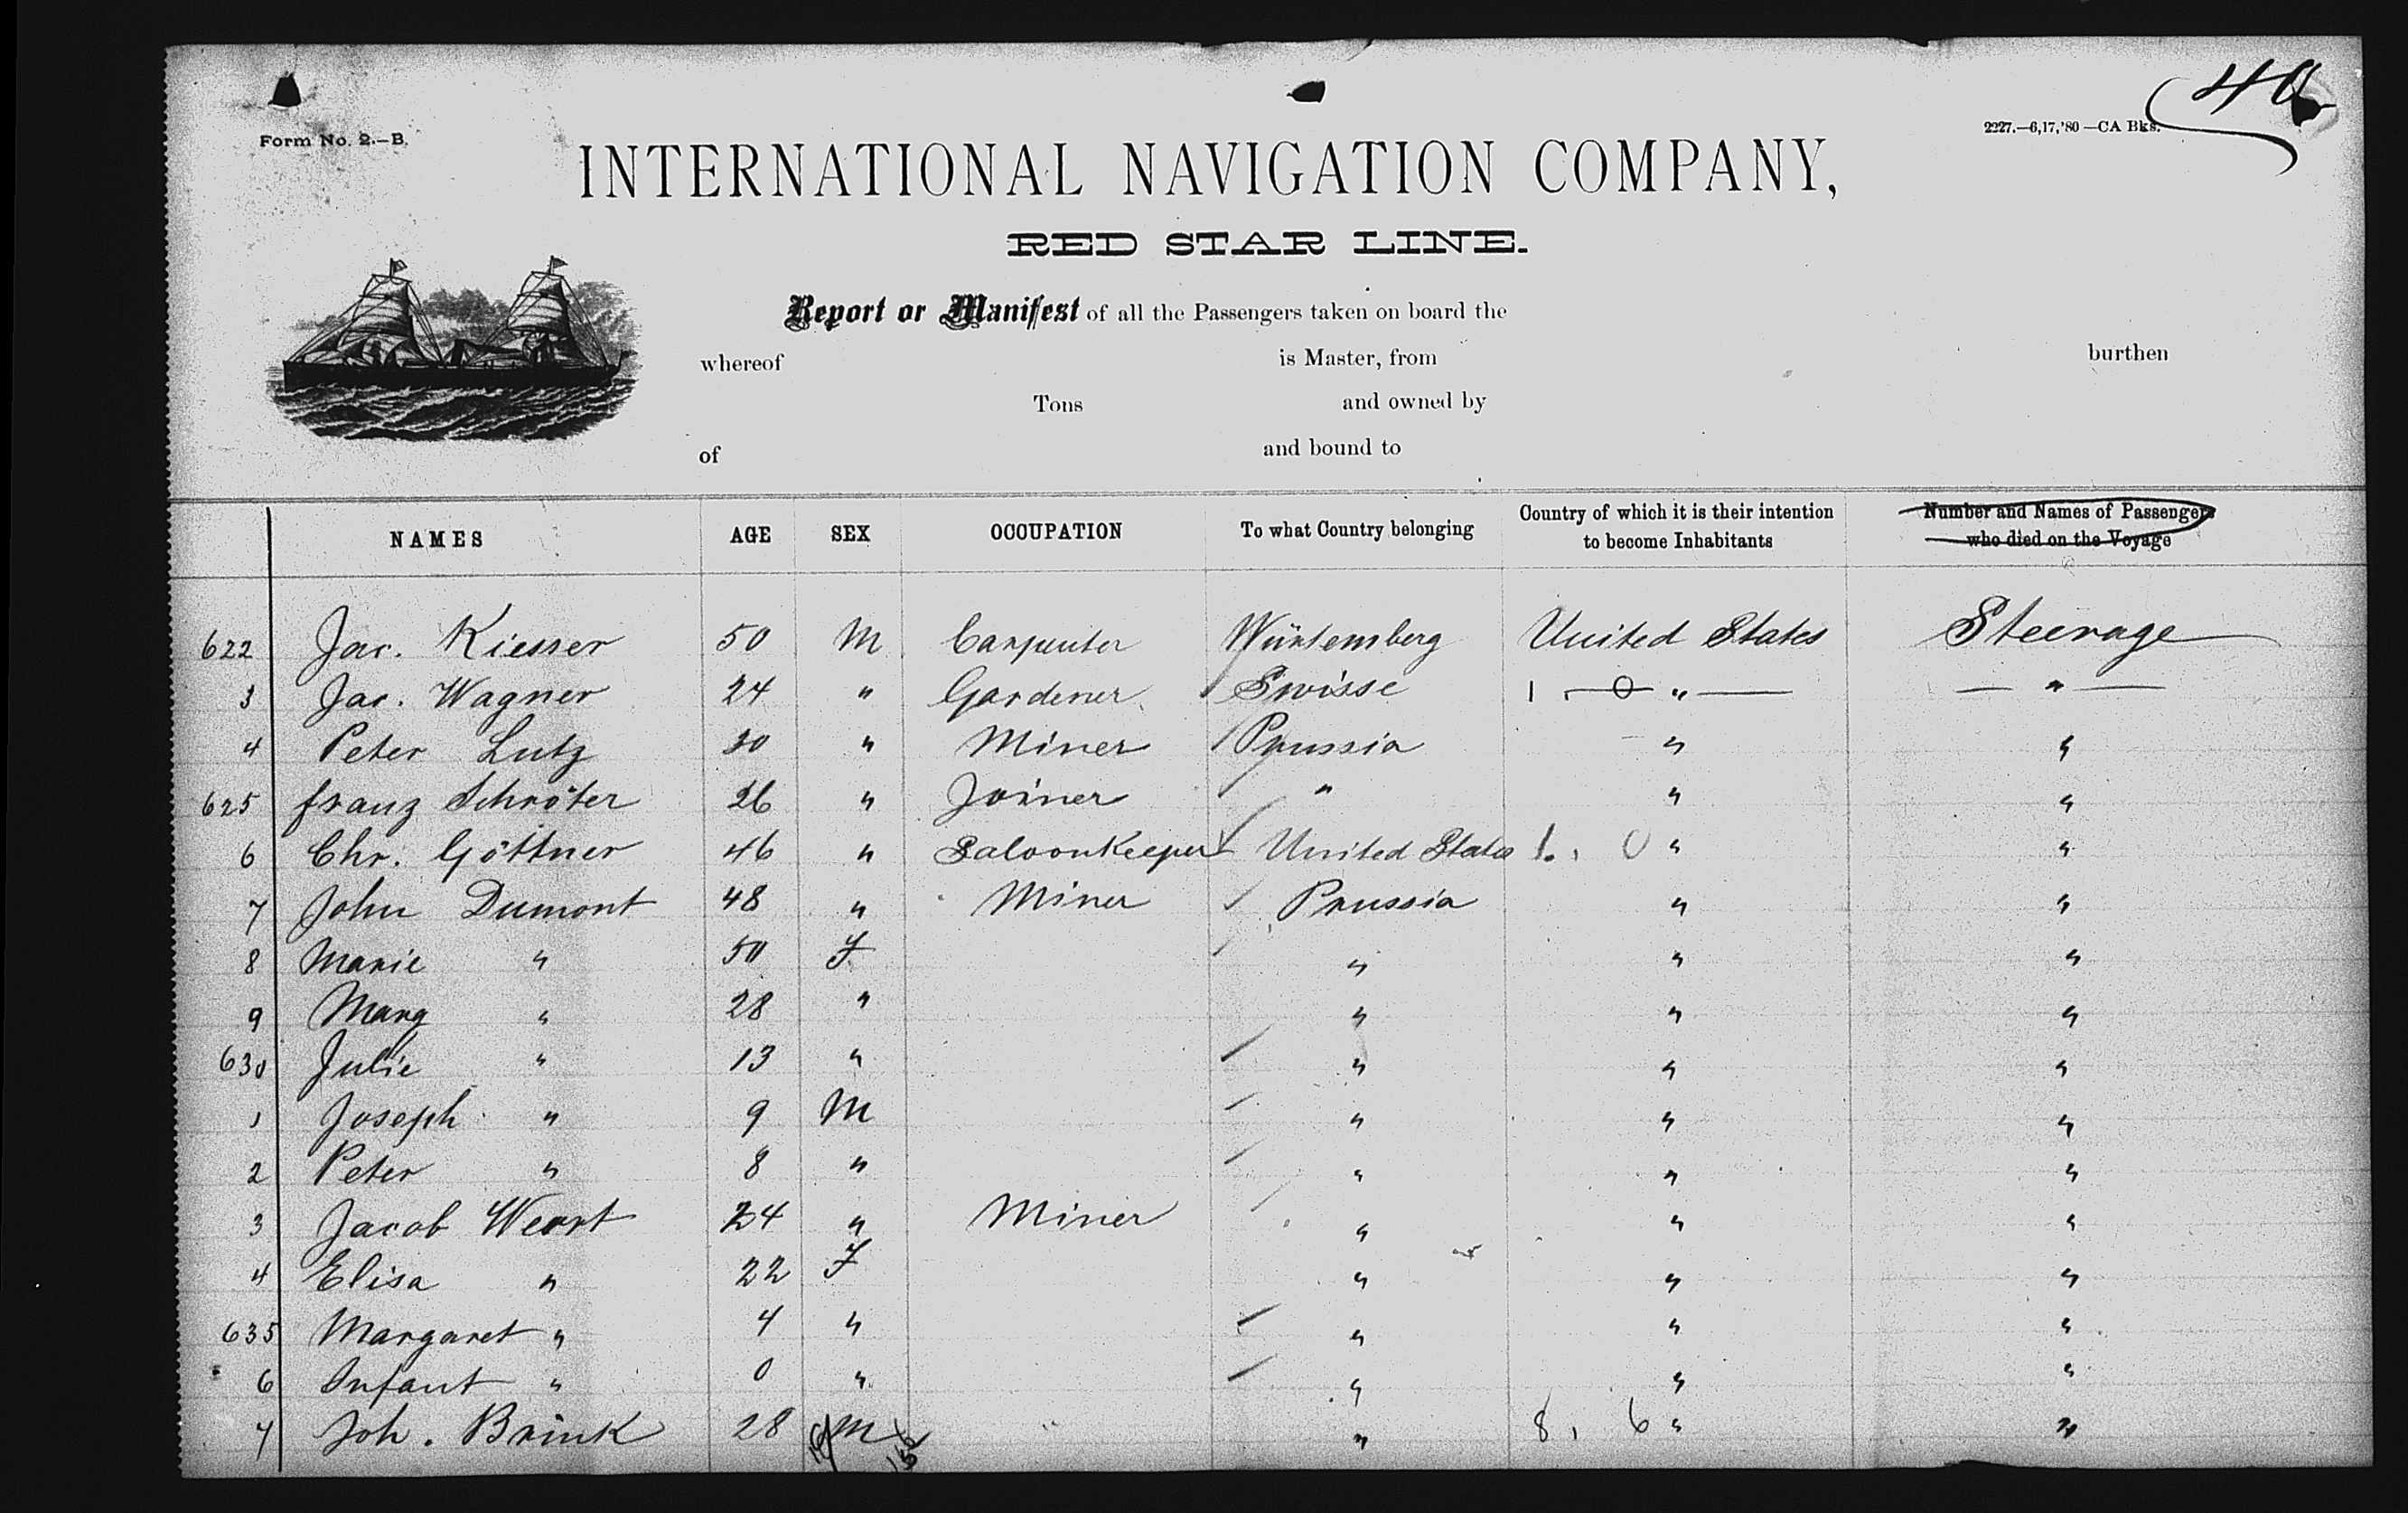 40
Form No. 2.—B.
2227.—6,17,'80—CA Bks.
INTERNATIONAL NAVIGATION COMPANY,
RED STAR LINE.
Report or Manifest of all the Passengers taken on board the
whereof is Master, from burthen
Tons and owned by
of and bound to
NAMES AGE SEX OCCUPATION To what Country belonging Country of which it is their intention to become Inhabitants Number and Names of Passengers who died on the Voyage
622 Jac. Kiesser 50 M Carpenter Würtemberg United States Steerage
3 Jac. Wagner 24 " Gardener Swisse 1 - 0 " — — " —
4 Peter Lutz 30 " Miner Prussia " "
625 Franz Schröter 26 " Joiner " " "
6 Chr. Göttner 46 " Saloonkeeper United States 1. , 0 " "
7 John Dumont 48 " Miner Prussia " "
8 Marie " 50 F " " "
9 Marg " 28 " " " "
630 Julie " 13 " " " "
1 Joseph " 9 M " " "
2 Peter " 8 " " " "
3 Jacob 24 " Miner " " "
4 Elisa " 22 F " " "
635 Margaret " 4 " " " "
6 Infant " 0 " " " "
7 Joh. Brink 28 M " 8, 6 " "